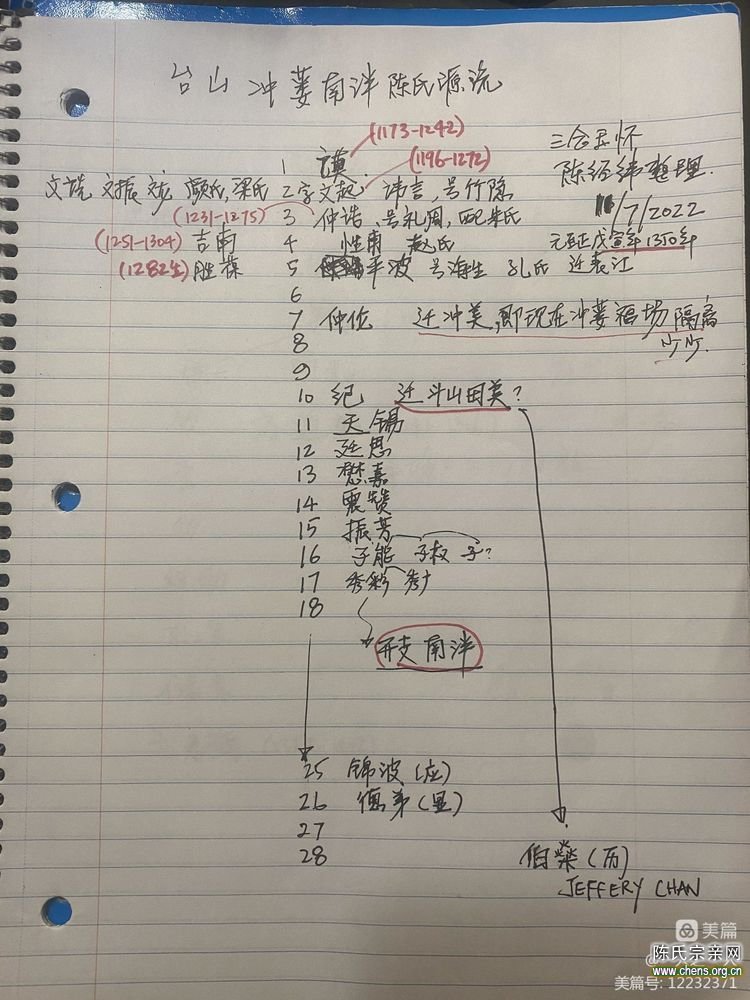 台山 冲蒌南泮陈氏源流
三合互怀
陈经纬整理
11/7/2022
1 谟 (1173-1242)
文龙 颜氏, 梁氏 2 字文起 讳言, 号竹隐 (1196-1272)
(1231-1275) 3 仲诰 号礼周, 配朱氏
(1251-1304) 吉甫 4 性甫 赵氏 元至正戊寅年1350年
(1282生) 胜葆 5 平波 号海生 孔氏 迁表江
6
7 仲位 迁冲美, 即现在冲蒌福场隔离少少.
8
9
10 纪 迁斗山田美?
11 天锡
12 廷思
13 懋嘉
14 震赞
15 振芳
16 子能 子权 子?
17 秀彩 秀
18
开支南泮
25 锦波(应)
26 德弟(显)
27
28 伯燊(历)
JEFFERY CHAN
美篇
陈氏宗亲网
www.chens.org.cn
美篇号: 12232371